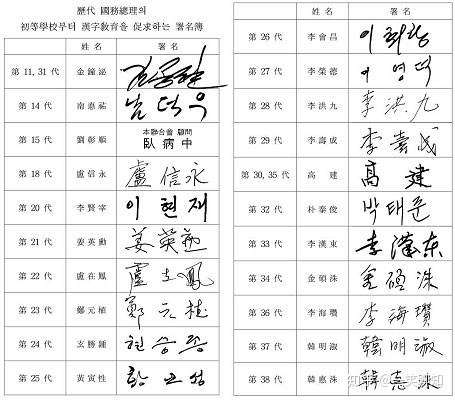 歷代 國務總理의
初等學校부터 漢字敎育을 促求하는 署名簿
姓名 署名
第11,31代 金鍾泌 김종필
第14代 南悳祐 남덕우
第15代 劉彰順 本聯合會 顧問 臥病中
第18代 盧信永 盧信永
第20代 李賢宰 이현재
第21代 姜英勳 姜英勳
第22代 盧在鳳 盧在鳳
第23代 鄭元植 鄭元植
第24代 玄勝鍾 현승종
第25代 黃寅性 황인성
姓名 署名
第26代 李會昌 이회창
第27代 李榮德 이영덕
第28代 李洪九 李洪九
第29代 李壽成 李壽成
第30,35代 高建 高建
第32代 朴泰俊 박태준
第33代 李漢東 李漢东
第34代 金碩洙 金碩洙
第36代 李海瓚 李海瓚
第37代 韓明淑 韓明淑
第38代 韓悳洙 韓悳洙